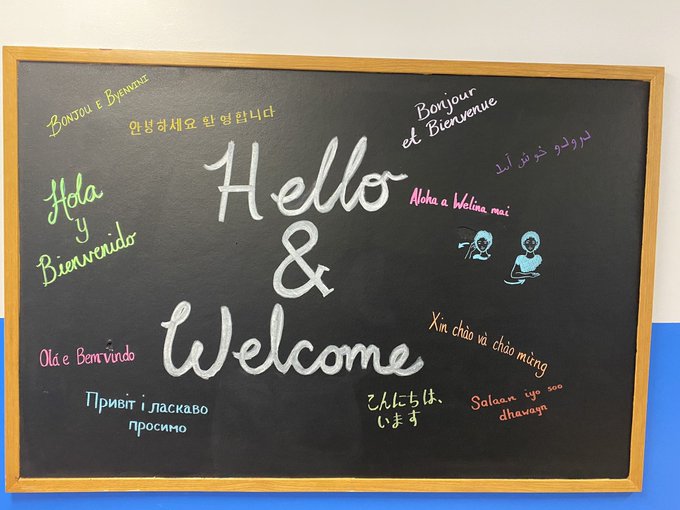 BONJOU E BYENVINI
안녕하세요 환영합니다
Bonjour
et Bienvenue
خوش
Hello
&
Welcome
Hola
y
Bienvenido
Aloha a Welina mai
Xin chào và chào mừng
Olá e Bemvindo
Привіт і ласкаво
просимо
こんにちは、
います
Salaan iyo soo
dhawayn